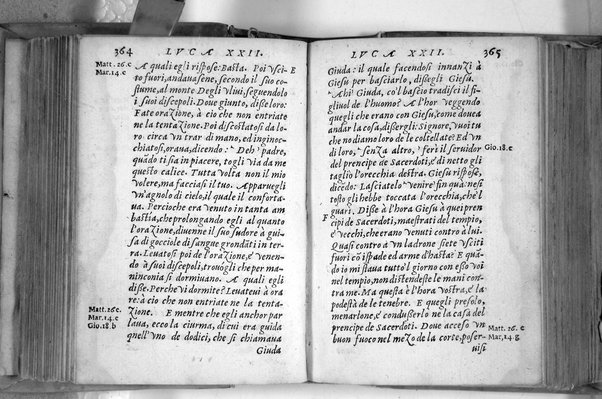 364 LVCA XXII.
Matt. 26. c
Mar. 14. c
A quali egli rispose: Basta. Poi vsci-
to fuori, andauasene, secondo il suo co-
stume, al monte Degli Vliui, seguendolo
i suoi discepoli. Doue giunto, disse loro:
Fate orazione, à cio che non entriate
ne la tentazione. Poi discostatosi da lo-
ro circa vn trar di mano, ed inginoc-
chiatosi, oraua, dicendo: Deh padre,
quãdo ti sia in piacere, togli via da me
questo calice. Tutta volta non il mio
volere, ma facciasi il tuo. Apparuegli
vn'agnolo di cielo, il quale il conforta-
ua. Percioche era venuto in tanta am
bastia, che prolongando egli al quanto
l'orazione, diuenne il suo sudore à gui-
sa di gocciole di sangue grondati in ter-
ra. Leuatosi poi de l'orazione, e venen-
do à suoi discepoli, trouogli che per ma-
ninconia si dormiuano. A quali egli
disse. Perche vi dormite? Leuateui à ora
re: à cio che non entriate ne la tenta-
zione. E mentre che egli anchor par
laua, ecco la ciurma, di cui era guida
quell'vno de dodici, che si chiamaua
Giuda
E
Matt. 26. c.
Mar. 14. c
Gio. 18. b
LVCA XXII. 365
Giuda: il quale facendosi innanzi à
Giesu per basciarlo, dissegli Giesu.
Ahi Giuda, co'l bascio tradisci il fi-
gliuol de l'huomo? A l'hor veggendo
quegli che erano con Giesu, come doueа
andar la cosa, dissergli: Signore, vuoi tu
che no diamo loro de le coltellate? Ed vn
di loro, senza altro, ferì il seruidor
del prencipe de Sacerdoti, e di netto gli
taglio l'orecchia destra. Giesu rispose,
dicẽdo: Lasciatelo venire fin quà: ne si
tosto gli hebbe toccata l'orecchia, che'l
guari. Disse à l'hora Giesu à quei pren
cipi de Sacerdoti, maestrati del tempio,
e vecchi, che erano venuti contro à lui.
Quasi contro à vn ladrone siete vsciti
fuori cõ ispade ed arme d'hasta? E quã-
do io mi staua tutto'l giorno con esso voi
nel tempio, non distendeste le mani con
tra me. Ma questa è l'hora vostra, e la
podestà de le tenebre. E quegli presolo,
menarlone, e condusserlo ne la casa del
prencipe de Sacerdoti. Doue acceso vn
buon fuoco nel mezo de la corte, poser-
uisi
Gio. 18. c
F
Matt. 26. c
Mar. 14. g